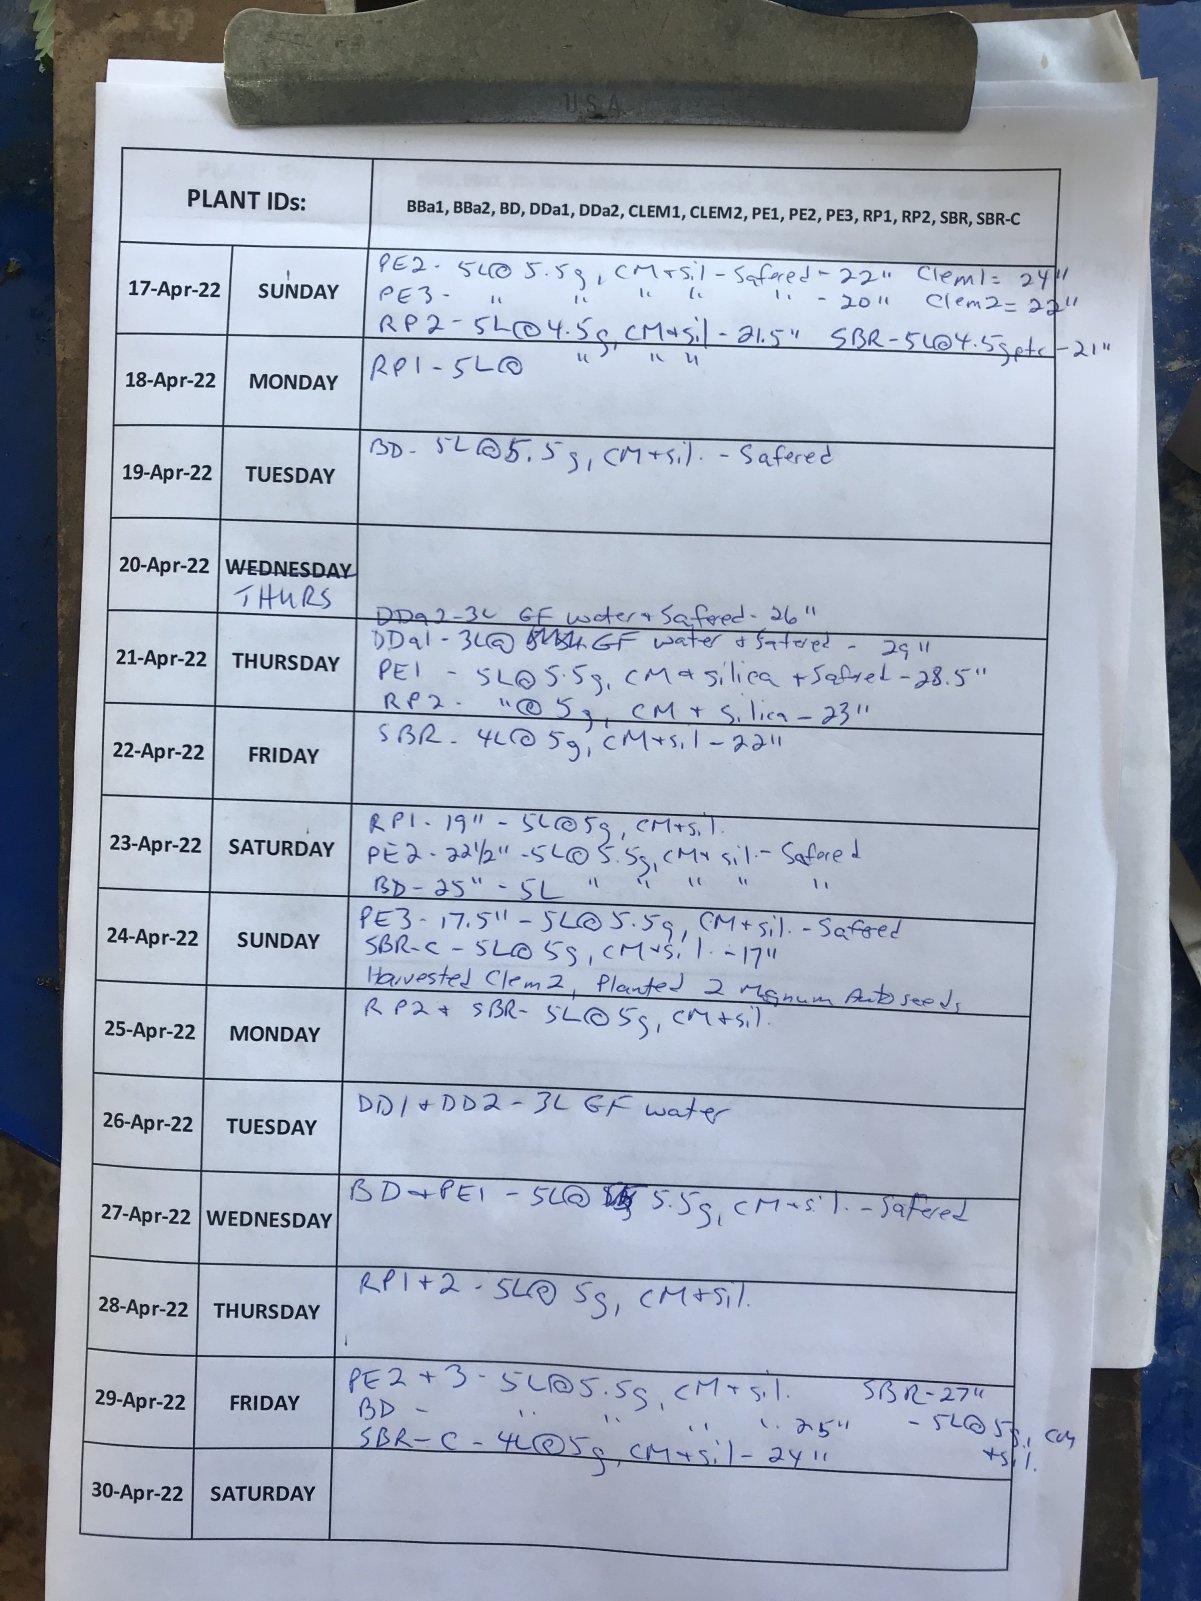 USA
PLANT IDs: BBa1, BBa2, BD, DDa1, DDa2, CLEM1, CLEM2, PE1, PE2, PE3, RP1, RP2, SBR, SBR-C
17-Apr-22 SUNDAY
PE2- 5L@ 5.5g, CM+sil - Safered - 22" Clem1= 24"
PE3- " " " " " - 20" Clem2= 22"
RP2 - 5L@4.5g, CM+sil - 21.5" SBR-5L@4.5g etc -21"
18-Apr-22 MONDAY
RP1-5L@ " " "
19-Apr-22 TUESDAY
BD- 5L@5.5g, CM+sil. - Safered
20-Apr-22 WEDNESDAY
THURS
DDa2-3L GF water+ Safered- 26"
21-Apr-22 THURSDAY
DDa1 - 3L@ GF water + Safered - 29"
PE1 - 5L@5.5g, CM + silica + Safred - 28.5"
RP2- "@ 5g, CM + Silica - 23"
22-Apr-22 FRIDAY
SBR- 4L@ 5g, CM+sil - 22"
23-Apr-22 SATURDAY
RP1- 19" - 5L@5g, CM+sil.
PE2-22 1/2" -5L@ 5.5g, CM+ sil.- Safered
BD- 25" - 5L " " " " "
24-Apr-22 SUNDAY
PE3- 17.5" - 5L@5.5g, CM+sil.- Safered
SBR-C - 5L@ 5g, CM+sil. -17"
Harvested Clem2, Planted 2 Mgnum Auto seeds
25-Apr-22 MONDAY
RP2 + SBR- 5L@5g, CM+sil.
26-Apr-22 TUESDAY
DD1+DD2 - 3L GF water
27-Apr-22 WEDNESDAY
BD+PE1 - 5L@ 5.5g, CM+sil. - Safered
28-Apr-22 THURSDAY
RP1+2 - 5L@ 5g, CM+sil.
29-Apr-22 FRIDAY
PE2 + 3 - 5L@5.5g, CM + sil. SBR-27"
BD - " " " " 25" - 5L@5g, CM
+sil.
SBR-C - 4L@5g, CM+sil - 24"
30-Apr-22 SATURDAY